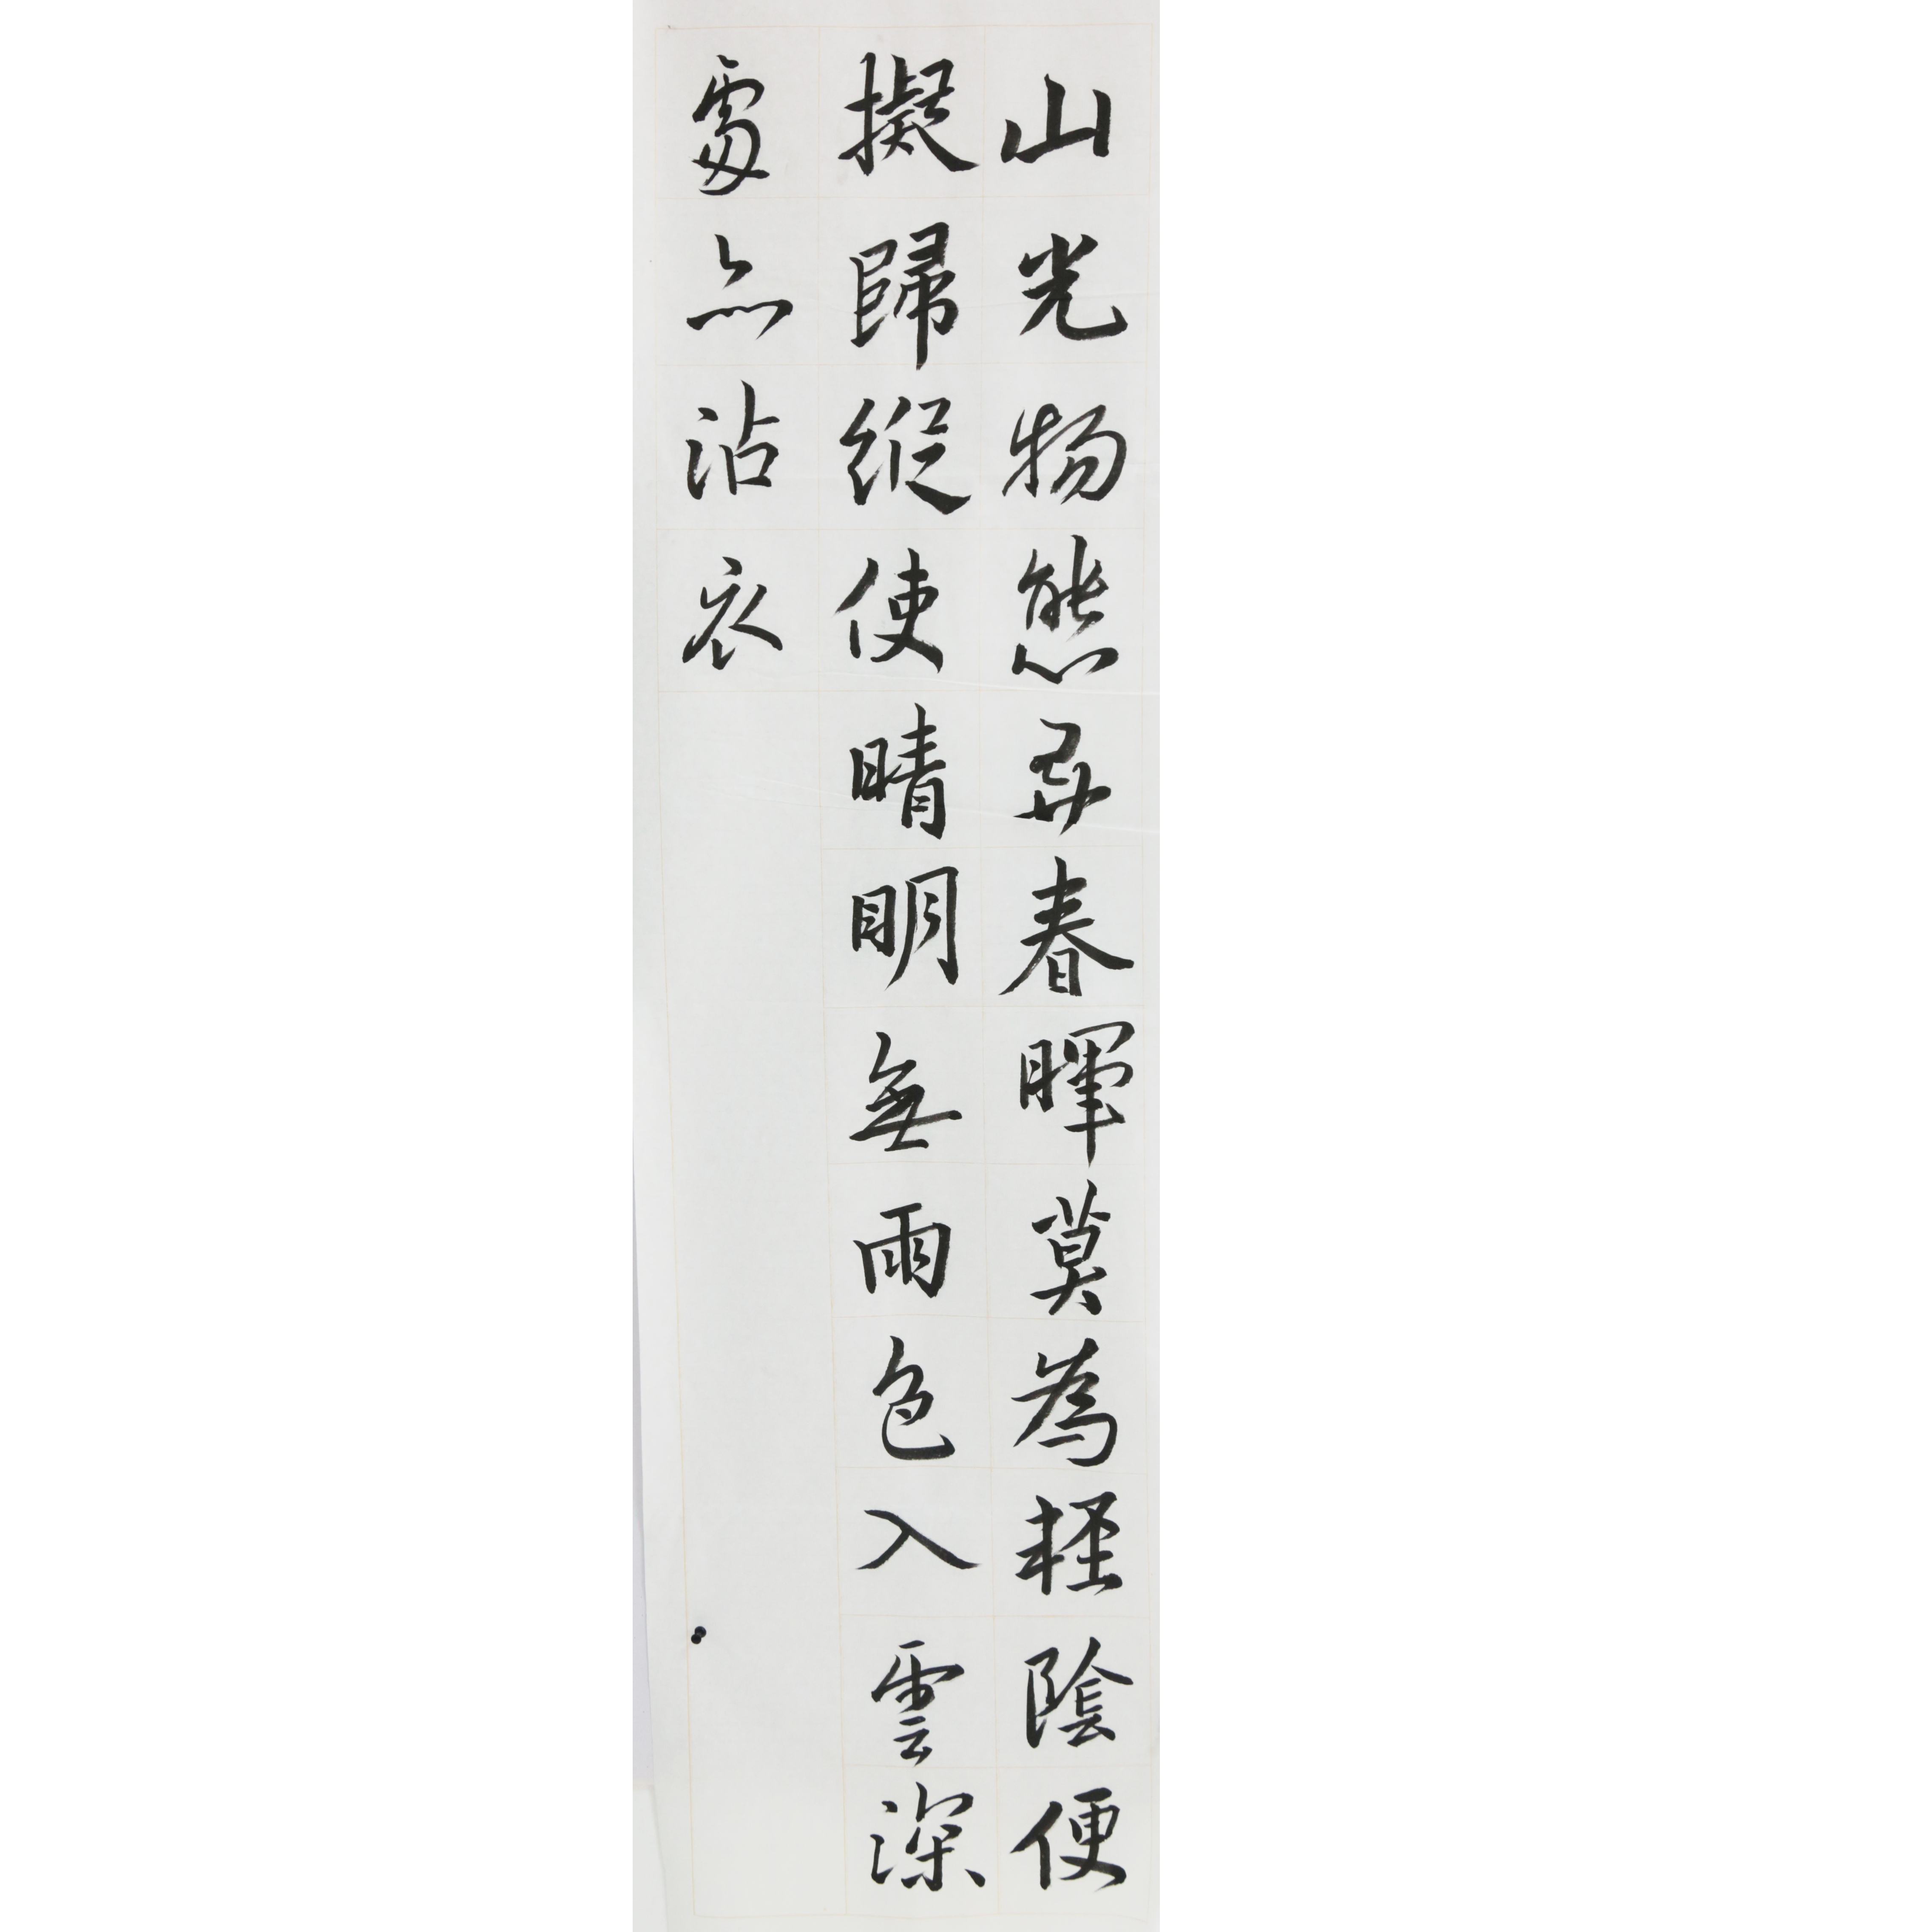 山光物態弄春暉莫為輕陰便
擬歸縱使晴明無雨色入雲深
處亦沾衣